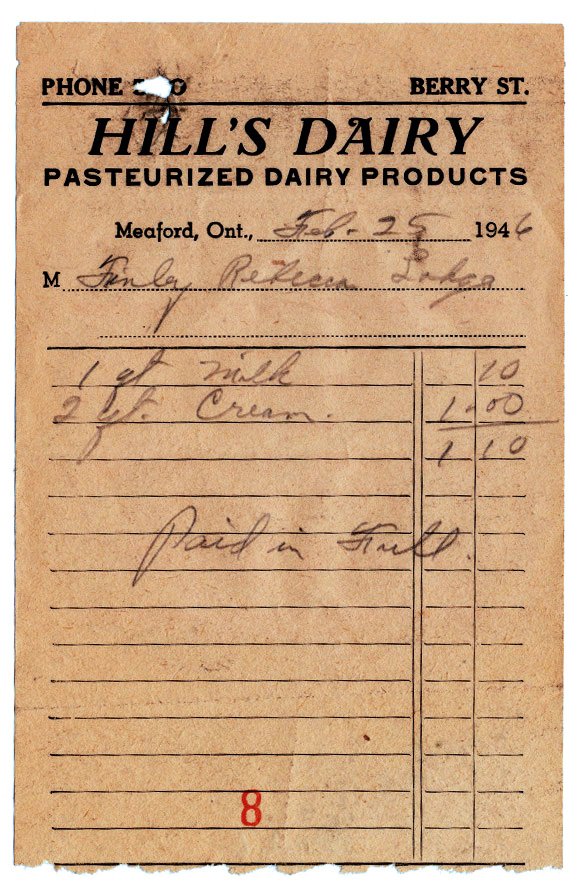 PHONE BERRY ST.
HILL'S DAIRY
PASTEURIZED DAIRY PRODUCTS
Meaford, Ont., Feb. 25 1946
M Finley Rebecca Lodge
1 qt Milk 10
2 qt. Cream. 1.00
1 10
Paid in Full.
8